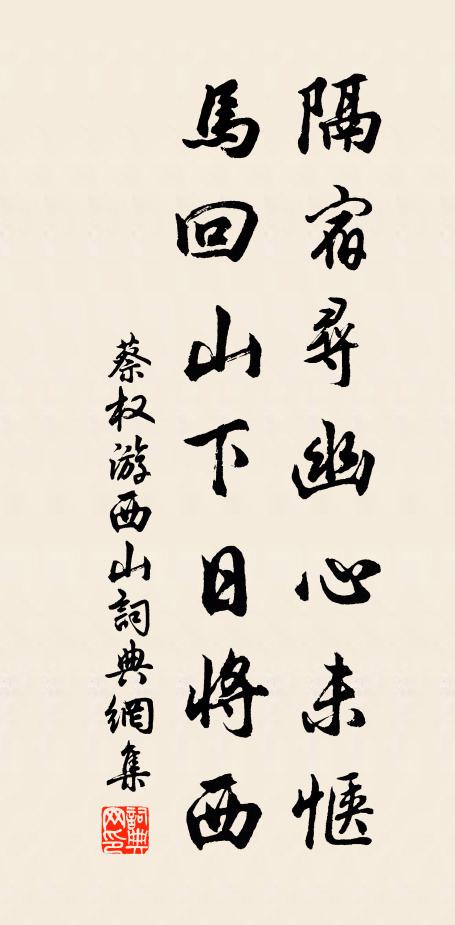 隔宿尋幽心未愜
馬回山下日將西
蔡权游西山詞典網集
詞典网印